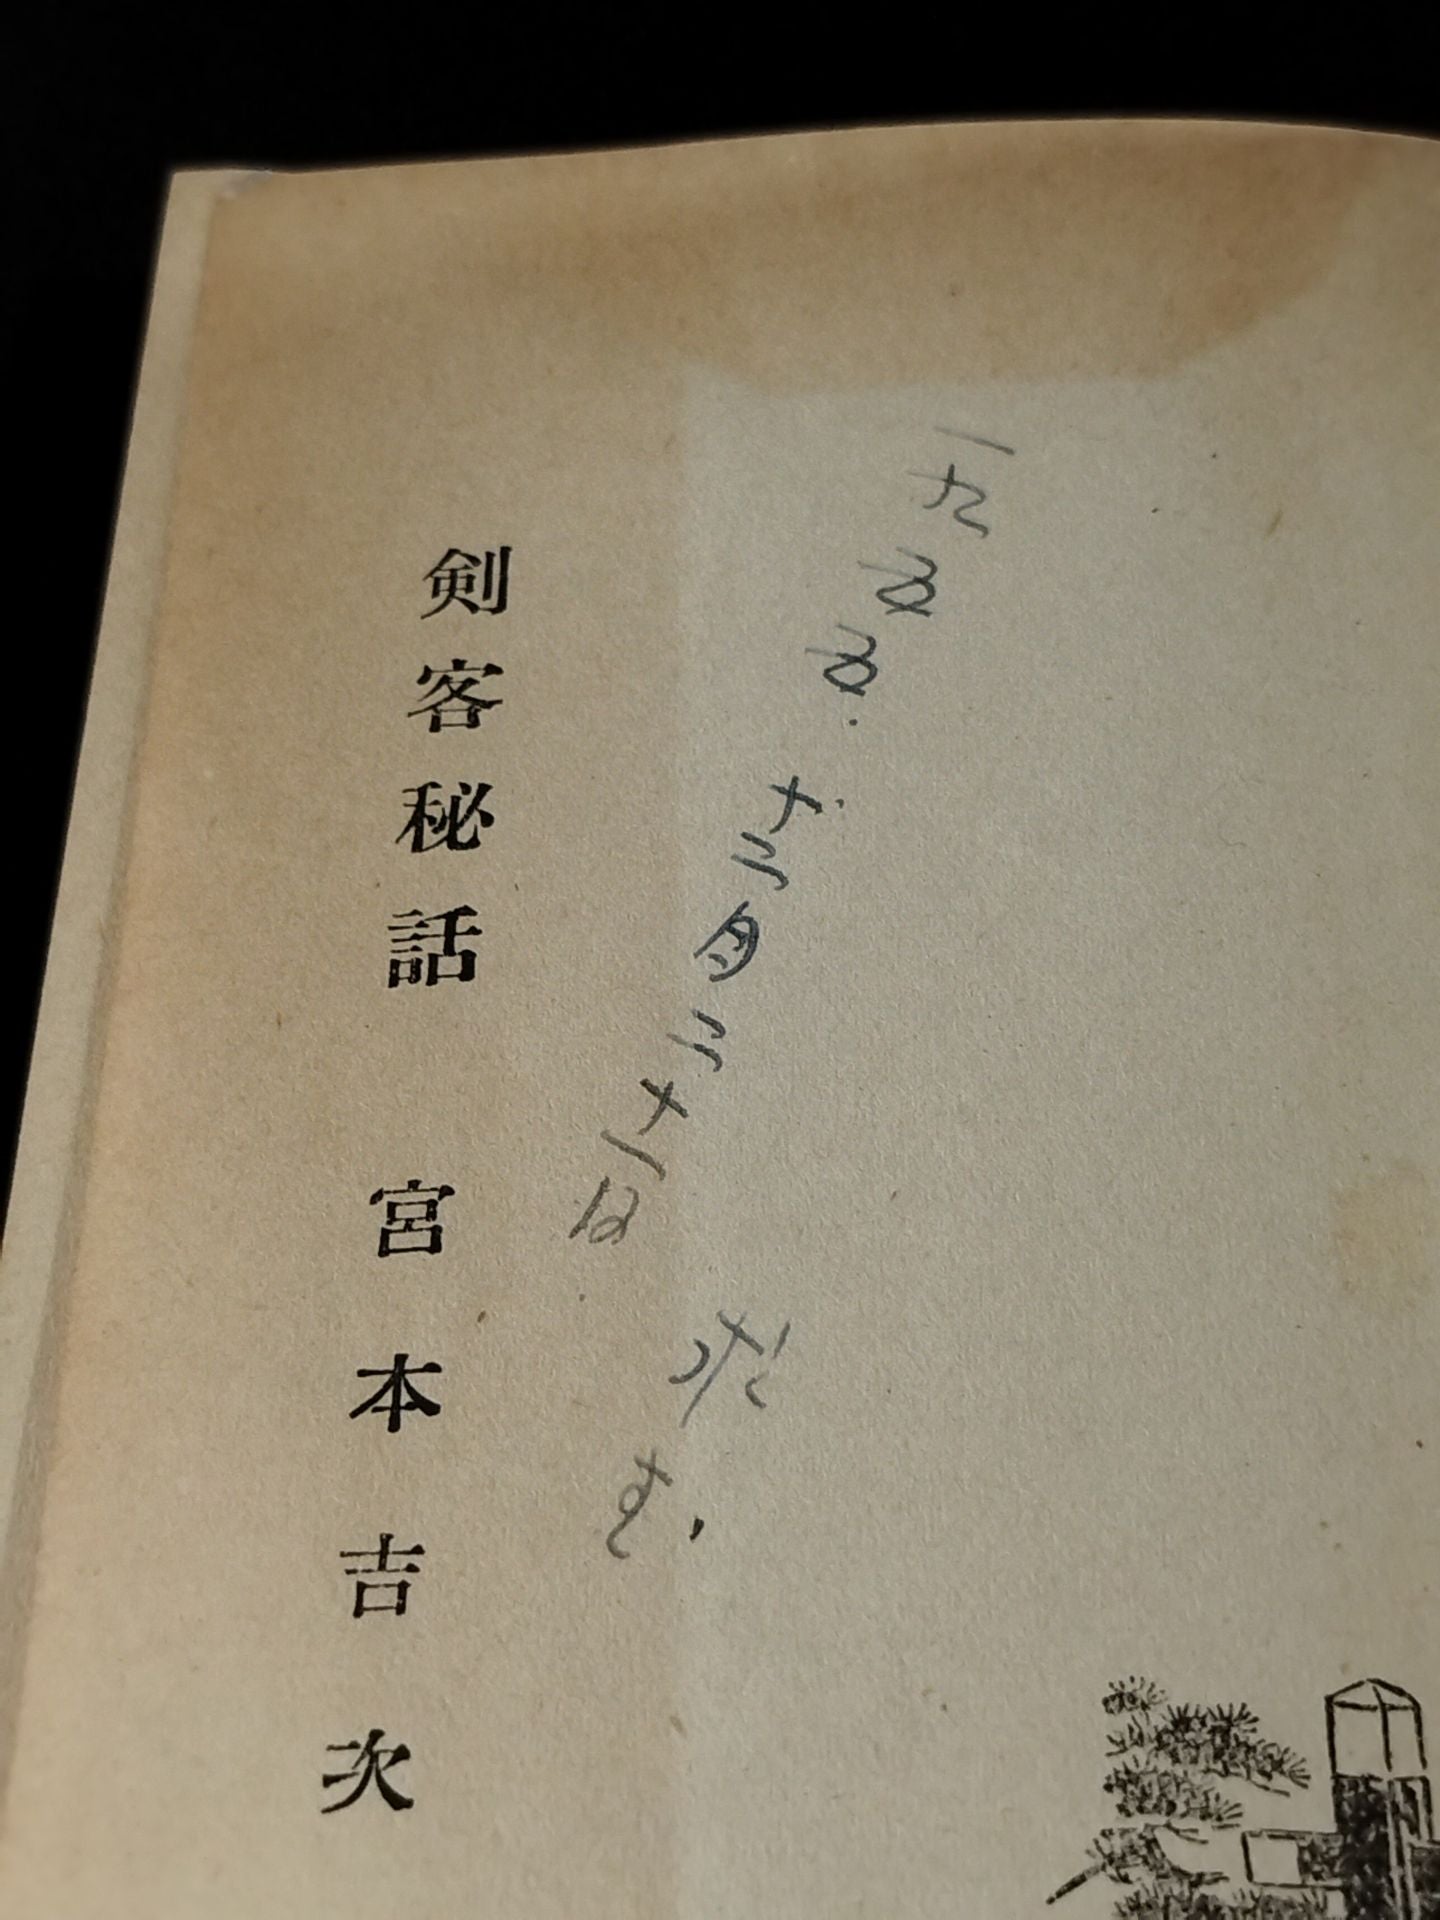 一九五五.十二月二十一日
求む,
剣客秘話 宮本吉次